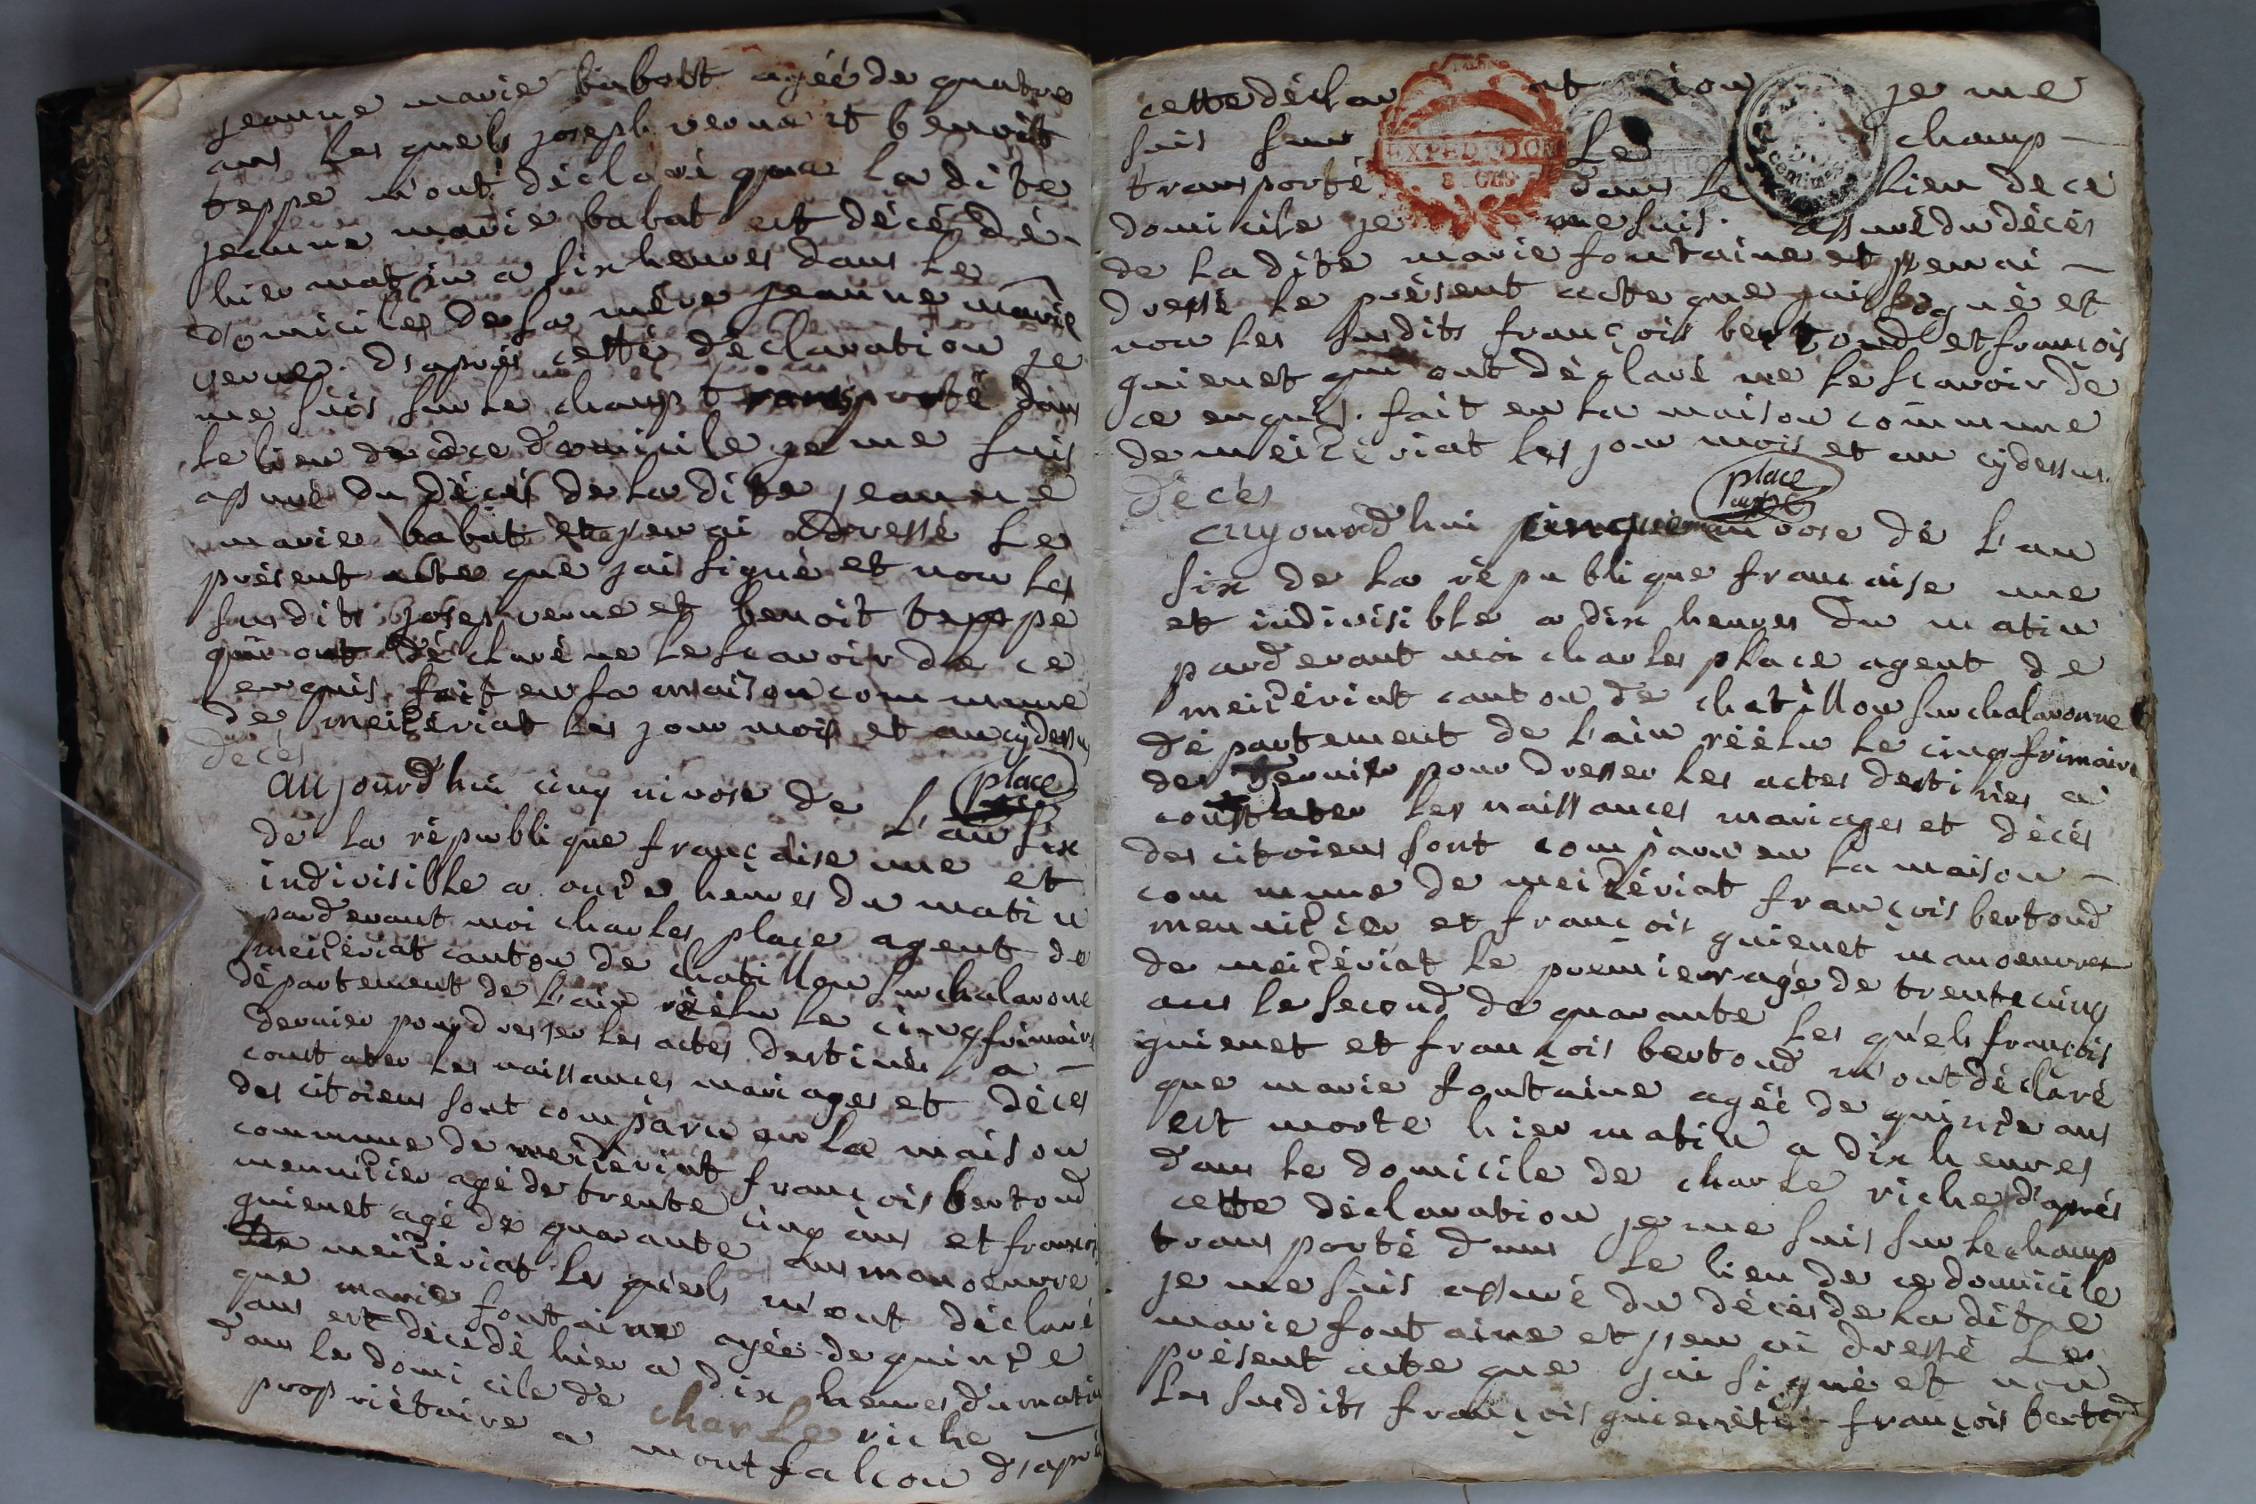 jeanne marie babolt agéé de quatre
ans les quels joseph verne et benoit
teppe m'ont déclaré que la dite
jeanne marie babat est décédé
hier matin a six heures dans le
domicile de sa mére jeanne marie
verne. d'aprés cette déclaration je
me suis sur le champ transporté dans
le lieu de ce domicile je me suis
assuré du décés de la dite jeanne
marie babat et jen ai dressé le
présent acte que jai signé et non les
susdits joseph verne et benoit teppe
qui ont déclaré ne le scavoir de ce
enquis. fait en la maison commune
de meizériat les jour mois et an cydessus
place
décés
aujourd'hui cinq nivose de l'an six
de la république française une et
indivisible a onze heures du matin
pardevant moi charles place agent de
meizériat canton de chatillon sur chalarone
département de l'ain réélu le cinq frimaire
dernier pour dresser les actes destinés a
constater les naissances mariages et décés
des citoiens sont comparu en la maison
commune de meizeriat françois bertoud
meunizier agé de trente cinq ans et françois
guienet agé de quarante ans manoeuvre
de meizériat les quels m'ont déclaré
que marie fontaine agéé de quinze
ans est décédé hier a dix heures du matin
dans le domicile de charle riche
propriétaire a montfalcon d'aprés
cette déclaration je me
suis sur le champ
EXPEDITION
centimes
transporté dans le lieu de ce
domicile je me suis assuré du décés
de la dite marie fontaine et jen ai
dressé le présent acte que jai signé et
non les susdits françois bertoud et françois
guienet qui ont déclaré ne le scavoir de
ce enquis. fait en la maison commune
de meizériat les jour mois et an cydessus.
place
décés
aujourd'hui cinq nivose de l'an
six de la république française une
et indivisible a dix heures du matin
pardevant moi charles place agent de
meizériat canton de chatillon sur chalaronne
département de l'ain réélu le cinq frimaire
dernier pour dresser les actes destinés a
constater les naissances mariages et décés
des citoiens sont comparu en la maison
commune de meizériat françois bertoud
meunizier et françois guienet manoeuvre
de meizériat le premier agé de trente cinq
ans le second de quarante les quels françois
guienet et françois bertoud m'ont déclaré
que marie fontaine agéé de quinze ans
est morte hier matin a dix heures
dans le domicile de charle riche d'aprés
cette déclaration je me suis sur le champ
transporté dans le lieu de ce domicile
je me suis assuré du décés de la dite
marie fontaine et jen ai dressé le
présent acte que jai signé et non
les susdits françois guienet françois bertoud